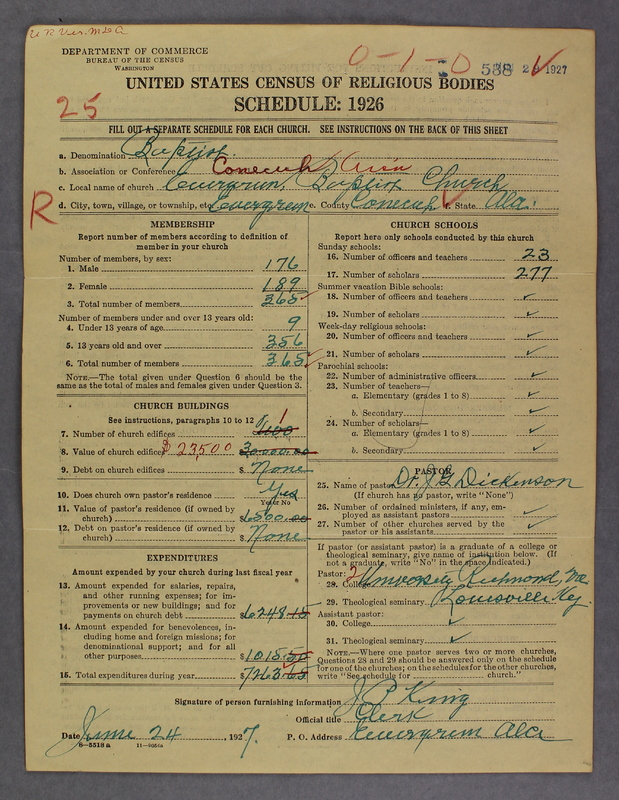 DEPARTMENT OF COMMERCE
BUREAU OF THE CENSUS
WASHINGTON
0-1-0 588 1927
UNITED STATES CENSUS OF RELIGIOUS BODIES
25
SCHEDULE: 1926
FILL OUT A SEPARATE SCHEDULE FOR EACH CHURCH. SEE INSTRUCTIONS ON THE BACK OF THIS SHEET
a. Denomination Baptist
b. Association or Conference Conecuh
c. Local name of church Evergreen, Baptist Church
R
d. City, town, village, or township, etc. Evergreen e. County Conecuh f. State Ala.
MEMBERSHIP
Report number of members according to definition of
member in your church
Number of members, by sex:
1. Male 176
2. Female 189
3. Total number of members 365
Number of members under and over 13 years old:
4. Under 13 years of age 9
5. 13 years old and over 356
6. Total number of members 365
NOTE.—The total given under Question 6 should be the
same as the total of males and females given under Question 3.
CHURCH BUILDINGS
See instructions, paragraphs 10 to 12
7. Number of church edifices 1
8. Value of church edifices $23500
9. Debt on church edifices $ None
10. Does church own pastor's residence Yes
Yes or No
11. Value of pastor's residence (if owned by
church) $6500.00
12. Debt on pastor's residence (if owned by
church) None
EXPENDITURES
Amount expended by your church during last fiscal year
13. Amount expended for salaries, repairs,
and other running expenses; for im-
provements or new buildings; and for
payments on church debt $6248.15
14. Amount expended for benevolences, in-
cluding home and foreign missions; for
denominational support; and for all
other purposes $1015.50
15. Total expenditures during year $7263.65
CHURCH SCHOOLS
Report here only schools conducted by this church
Sunday schools:
16. Number of officers and teachers 23
17. Number of scholars 277
Summer vacation Bible schools:
18. Number of officers and teachers
19. Number of scholars
Week-day religious schools:
20. Number of officers and teachers
21. Number of scholars
Parochial schools:
22. Number of administrative officers
23. Number of teachers—
a. Elementary (grades 1 to 8)
b. Secondary
24. Number of scholars—
a. Elementary (grades 1 to 8)
b. Secondary
PASTOR
25. Name of pastor Dr. J. G. Dickenson
(If church has no pastor, write "None")
26. Number of ordained ministers, if any, em-
ployed as assistant pastors
27. Number of other churches served by the
pastor or his assistants
If pastor (or assistant pastor) is a graduate of a college or
theological seminary, give name of institution below. (If
not a graduate, write "No" in the space indicated.)
Pastor:
28. College University Richmond, Va
29. Theological seminary Louisville Ky.
Assistant pastor:
30. College
31. Theological seminary
NOTE.—Where one pastor serves two or more churches,
Questions 28 and 29 should be answered only on the schedule
for one of the churches; on the schedules for the other churches,
write "See schedule for church."
Signature of person furnishing information J P King
Official title Clerk
Date June 24, 1927. P. O. Address Evergreen Ala
8-5518a 11-9051a